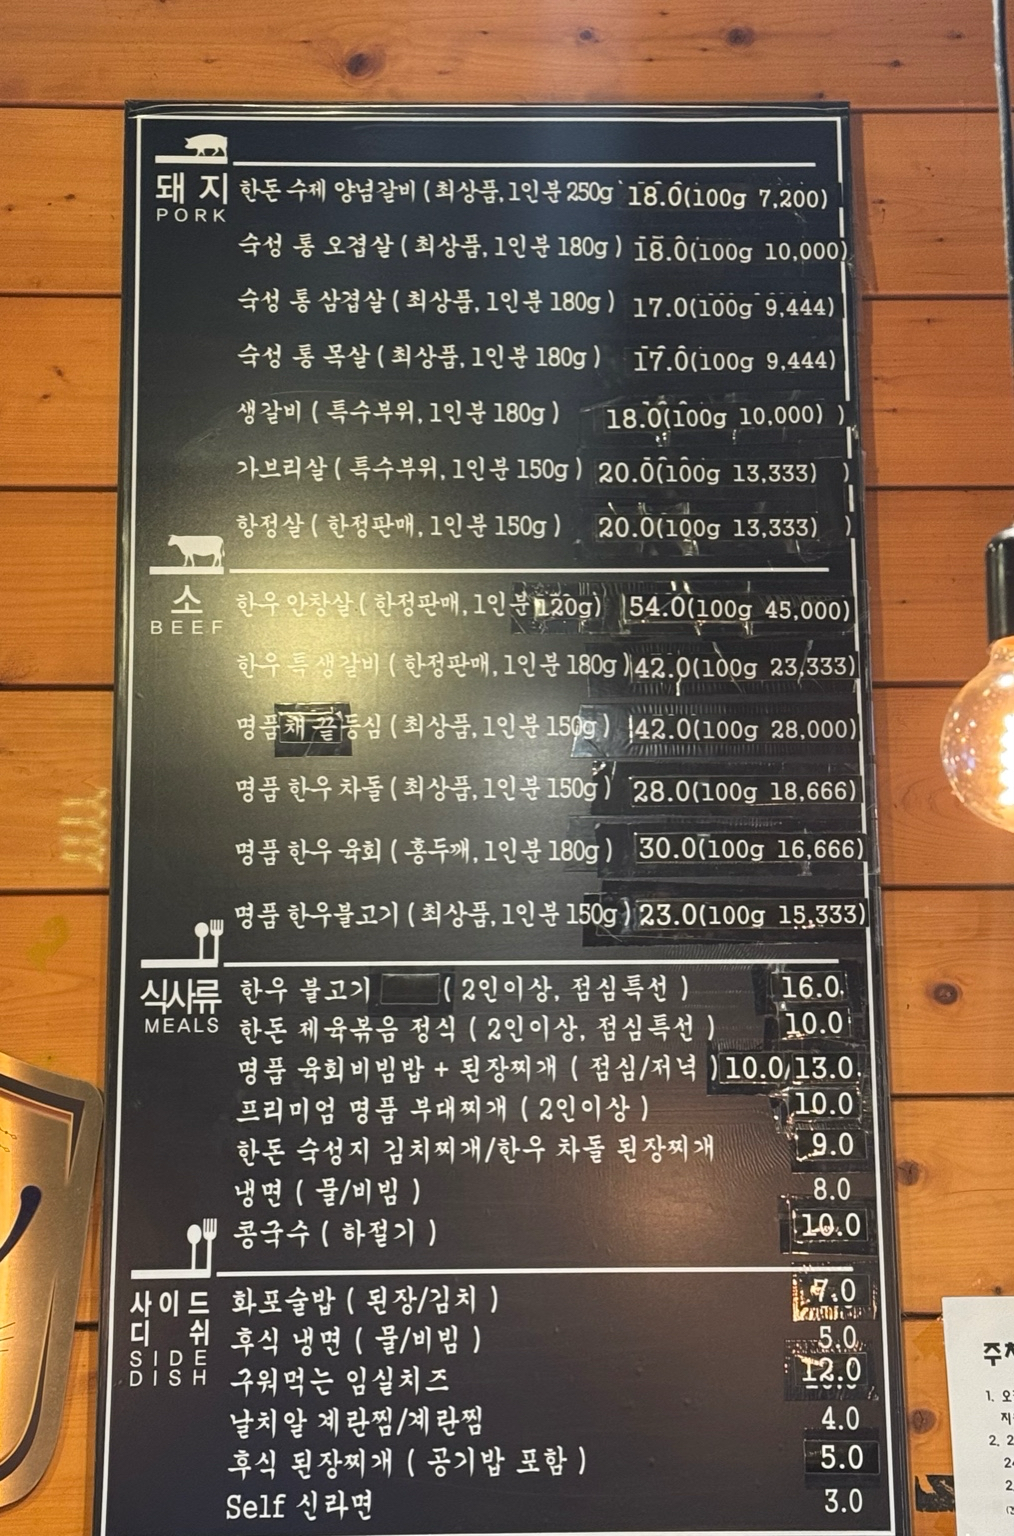 돼지
PORK
한돈 수제 양념갈비 (최상품, 1인분 250g 18.0(100g 7,200)
숙성 통 오겹살 ( 최상품, 1인분 180g ) 18.0(100g 10,000)
숙성 통 삼겹살 ( 최상품, 1인분 180g ) 17.0(100g 9,444)
숙성 통 목살 ( 최상품, 1인분 180g ) 17.0(100g 9,444)
생갈비 ( 특수부위, 1인분 180g ) 18.0(100g 10,000) )
가브리살 ( 특수부위, 1인분 150g ) 20.0(100g 13,333) )
항정살 ( 한정판매, 1인분 150g ) 20.0(100g 13,333) )
소
BEEF
한우 안창살 ( 한정판매, 1인분 120g) 54.0(100g 45,000)
한우 특생갈비 ( 한정판매, 1인분 180g ) 42.0(100g 23,333)
명품채끝등심 ( 최상품, 1인분 150g ) 42.0(100g 28,000)
명품 한우 차돌 ( 최상품, 1인분 150g ) 28.0(100g 18,666)
명품 한우 육회 ( 홍두깨, 1인분 180g ) 30.0(100g 16,666)
명품 한우불고기 ( 최상품, 1인분 150g ) 23.0(100g 15,333)
식사류
MEALS
한우 불고기 ( 2인이상, 점심특선 ) 16.0
한돈 제육볶음 정식 ( 2인이상, 점심특선 ) 10.0
명품 육회비빔밥 + 된장찌개 ( 점심/저녁 ) 10.0/13.0
프리미엄 명품 부대찌개 ( 2인이상 ) 10.0
한돈 숙성지 김치찌개/한우 차돌 된장찌개 9.0
냉면 ( 물/비빔 ) 8.0
콩국수 ( 하절기 ) 10.0
사이드
디쉬
SIDE
DISH
화포술밥 ( 된장/김치 ) 7.0
후식 냉면 ( 물/비빔 ) 5.0
구워먹는 임실치즈 12.0
날치알 계란찜/계란찜 4.0
후식 된장찌개 ( 공기밥 포함 ) 5.0
Self 신라면 3.0